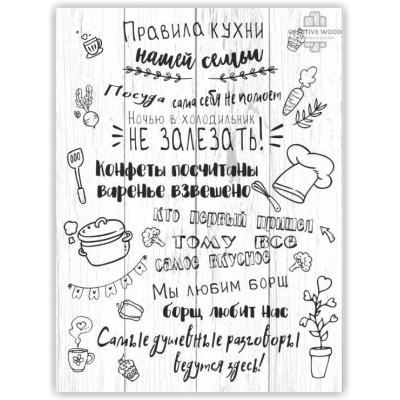 CREATIVE WOOD
Правила кухни
нашей семьи
Посуда сама себя не помоет
Ночью в холодильник
НЕ ЗАЛЕЗАТЬ!
Конфеты посчитаны
варенье взвешено
кто первый пришел
тому все
самое вкусное
Мы любим борщ
борщ любит нас
Самые душевные разговоры
ведутся здесь!